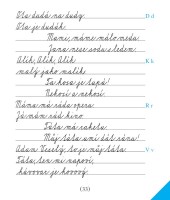 Ota dudá na dudy. D d
Ota je dudák.
Mami, máme málo medu.
Jana nese sodu s ledem.
Alík, Alík, Alík K k
malý jako malík.
Ta kosa je tupá!
Nekosí a nekosí.
Máma má ráda operu. R r
Já mám rád kino.
Táta má raketu.
Můj táta umí dát ránu!
Adam Veselý, to je můj táta. V v
Táta, ten mi napoví,
kovový je kovový.
(35)